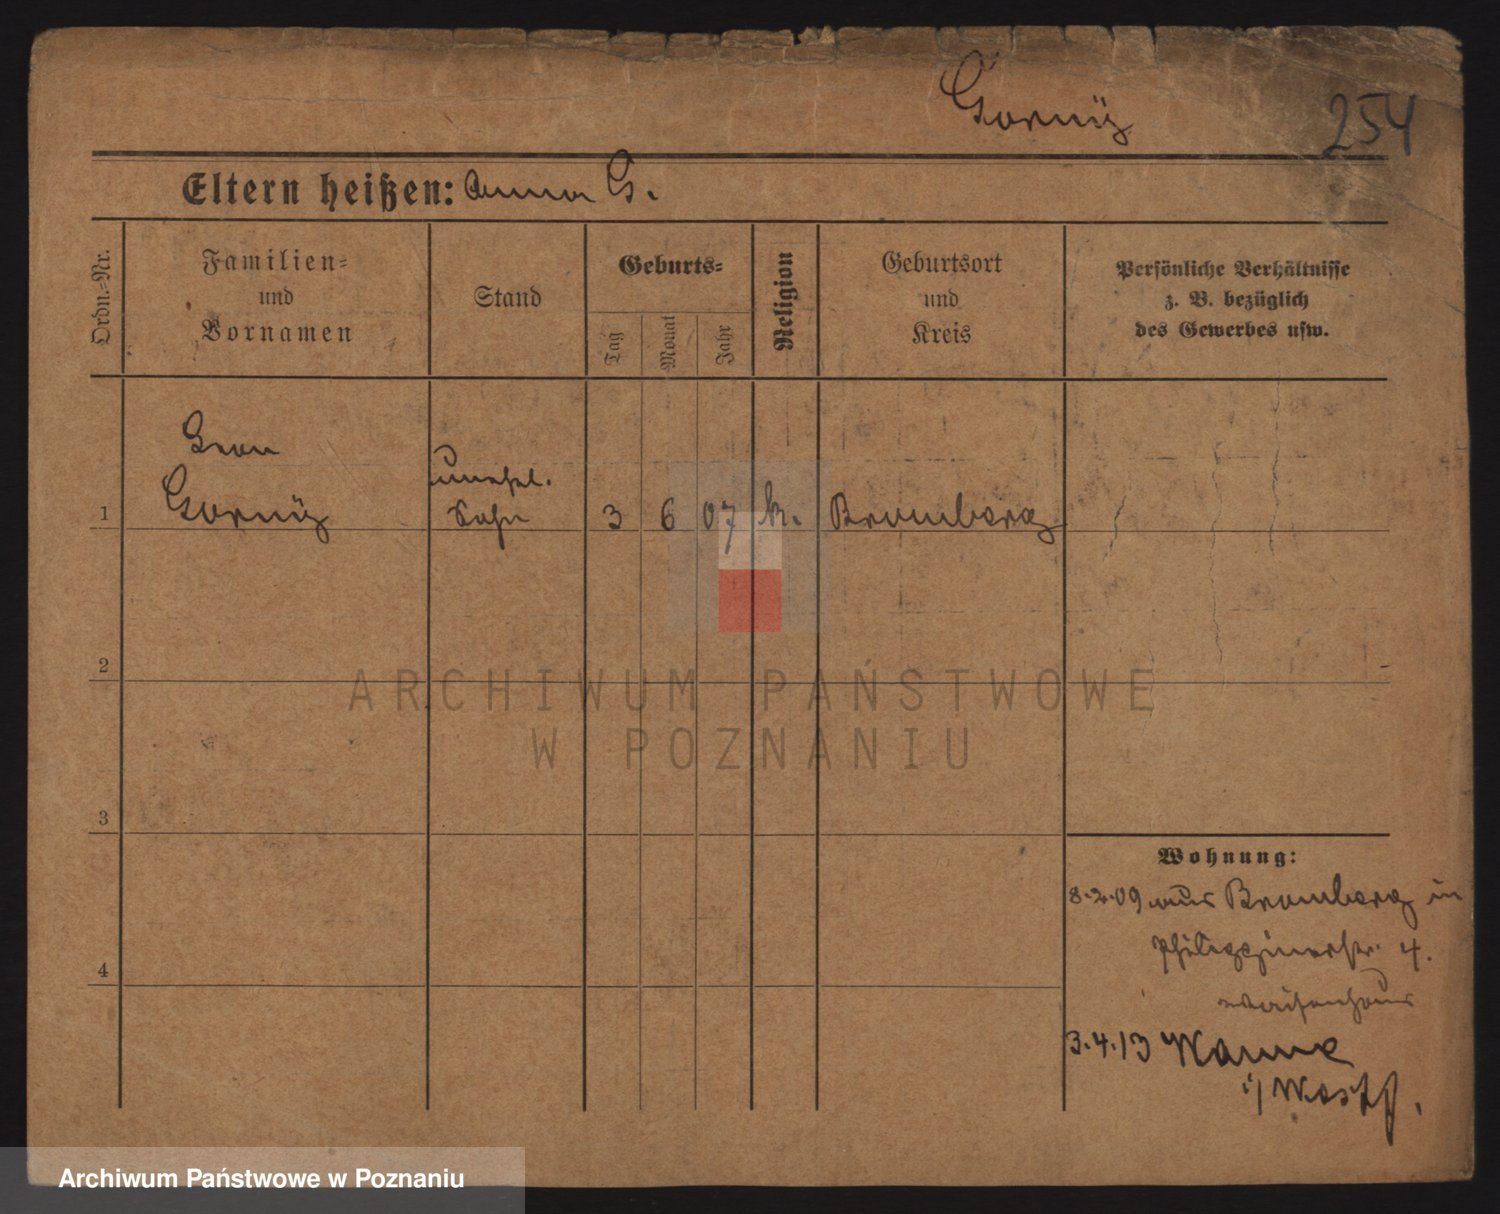 Gorny
254
Eltern heißen: Anna G.
Ordn.-Nr.
Familien-
und
Vornamen
Stand
Geburts-
Tag
Monat
Jahr
Religion
Geburtsort
und
Kreis
Persönliche Verhältnisse
z. B. bezüglich
des Gewerbes usw.
Leon
Gorny
unehel.
Sohn
1
3 6 07 k. Bromberg
2
3
4
Wohnung:
8.2.09 aus Bromberg in
Philippinerstr. 4.
Waisenhaus
3.4.13 Wanne
i/ Westf.
ARCHIWUM PAŃSTWOWE
W POZNANIU
Archiwum Państwowe w Poznaniu